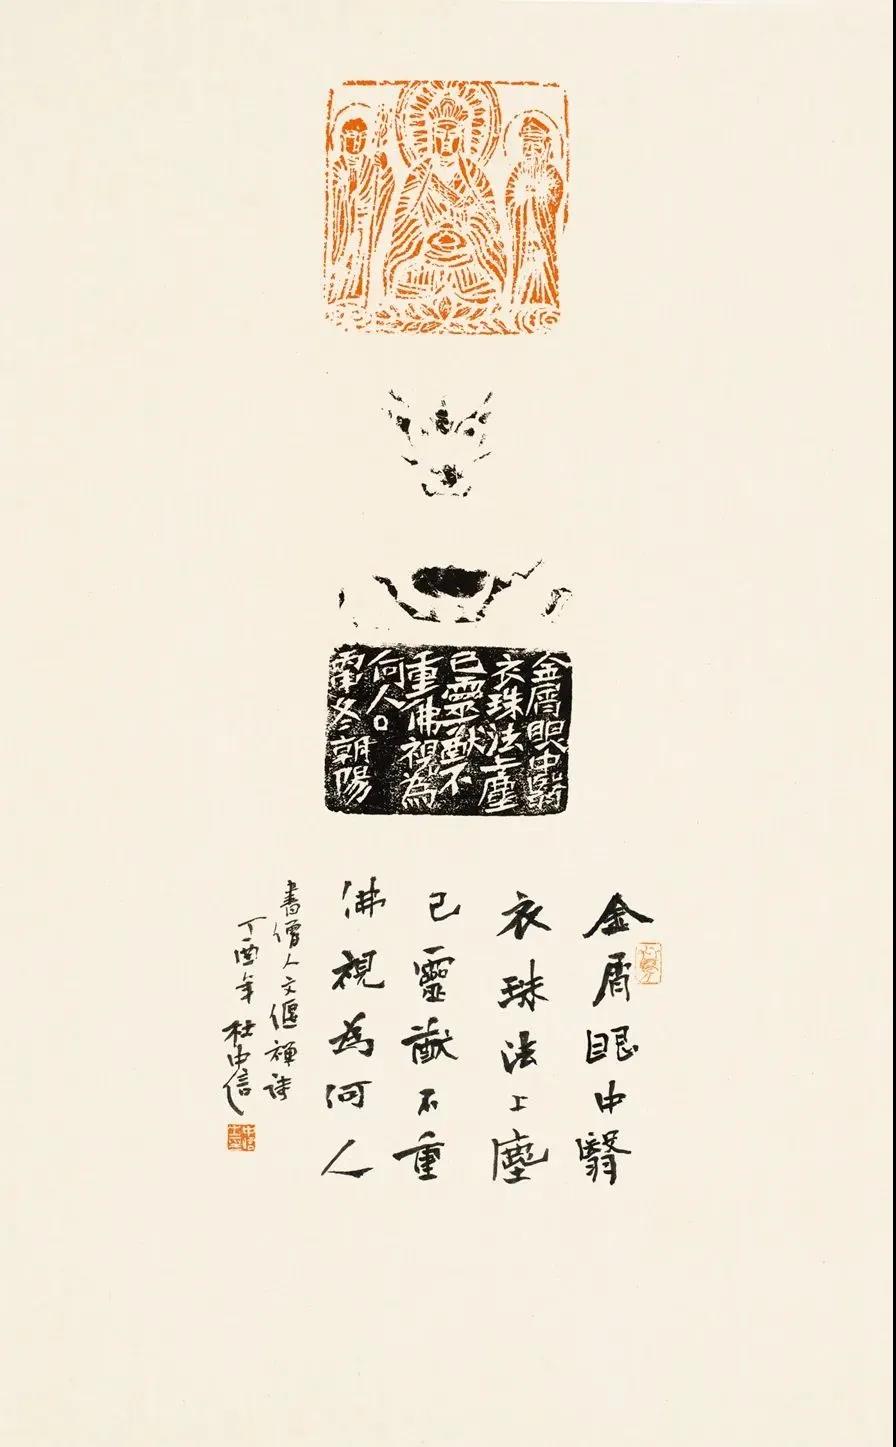 金屑眼中翳
衣珠法上塵
己靈猷不
重佛視為
何人。
丙申冬朝陽
金屑眼中翳
衣珠法上塵
己靈猷不重
佛視為何人
書僧人文偃禪詩
丁酉年杜中信